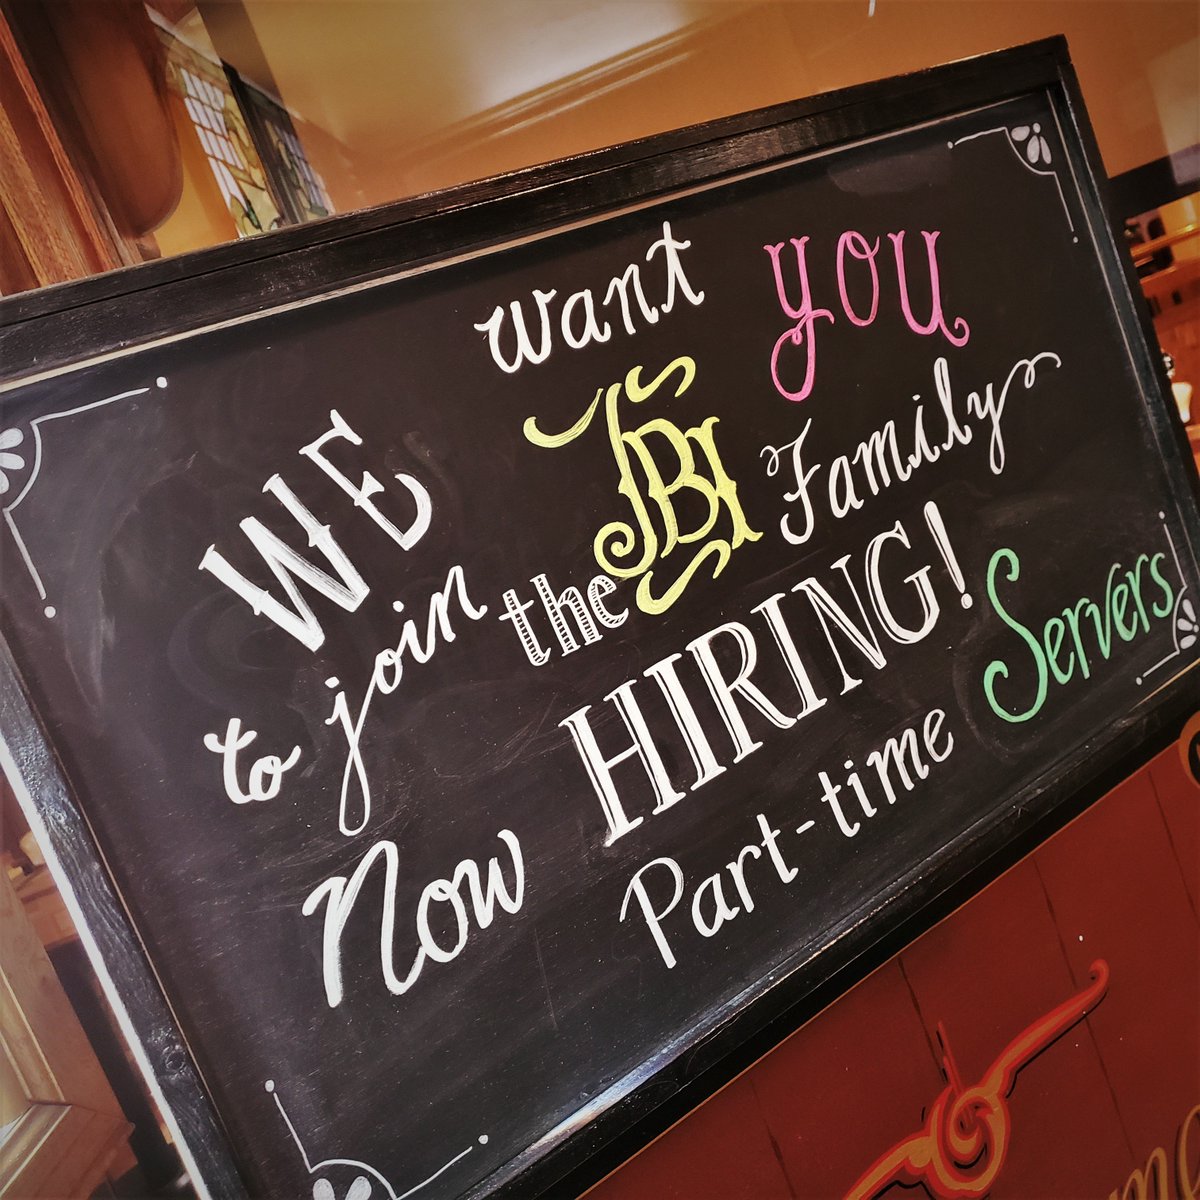 WE want you
to join the JBI Family
Now HIRING!
Part-time Servers